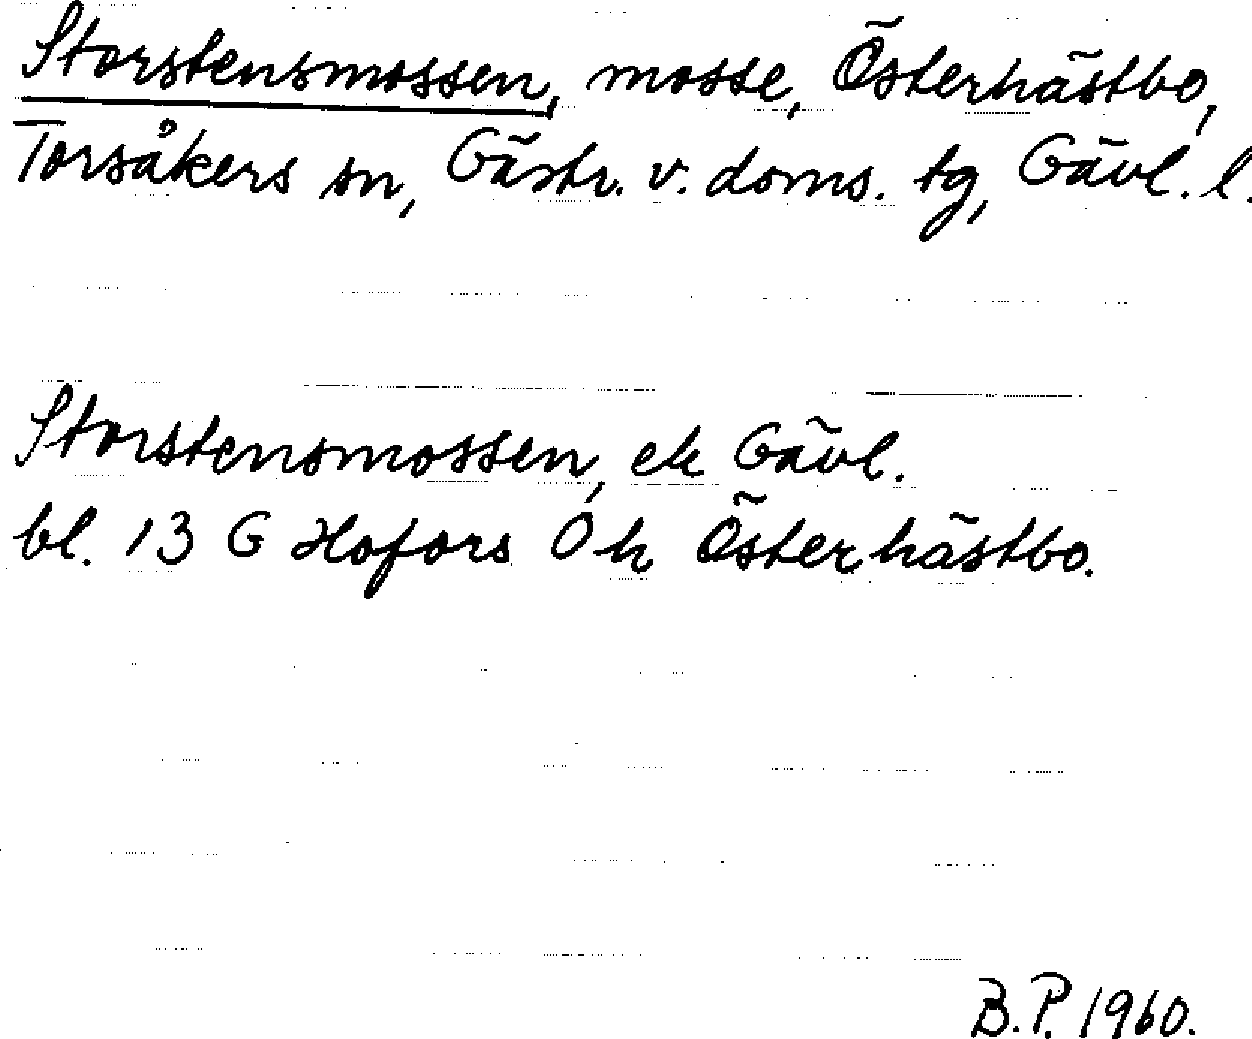 Storstensmossen, mosse, Österhästbo,
Torsåkers sn, Gästr. v. doms. tg, Gävl. l.
Storstensmossen, ek Gävl.
bl. 13 G Hofors Ö h Österhästbo.
B.P. 1960.